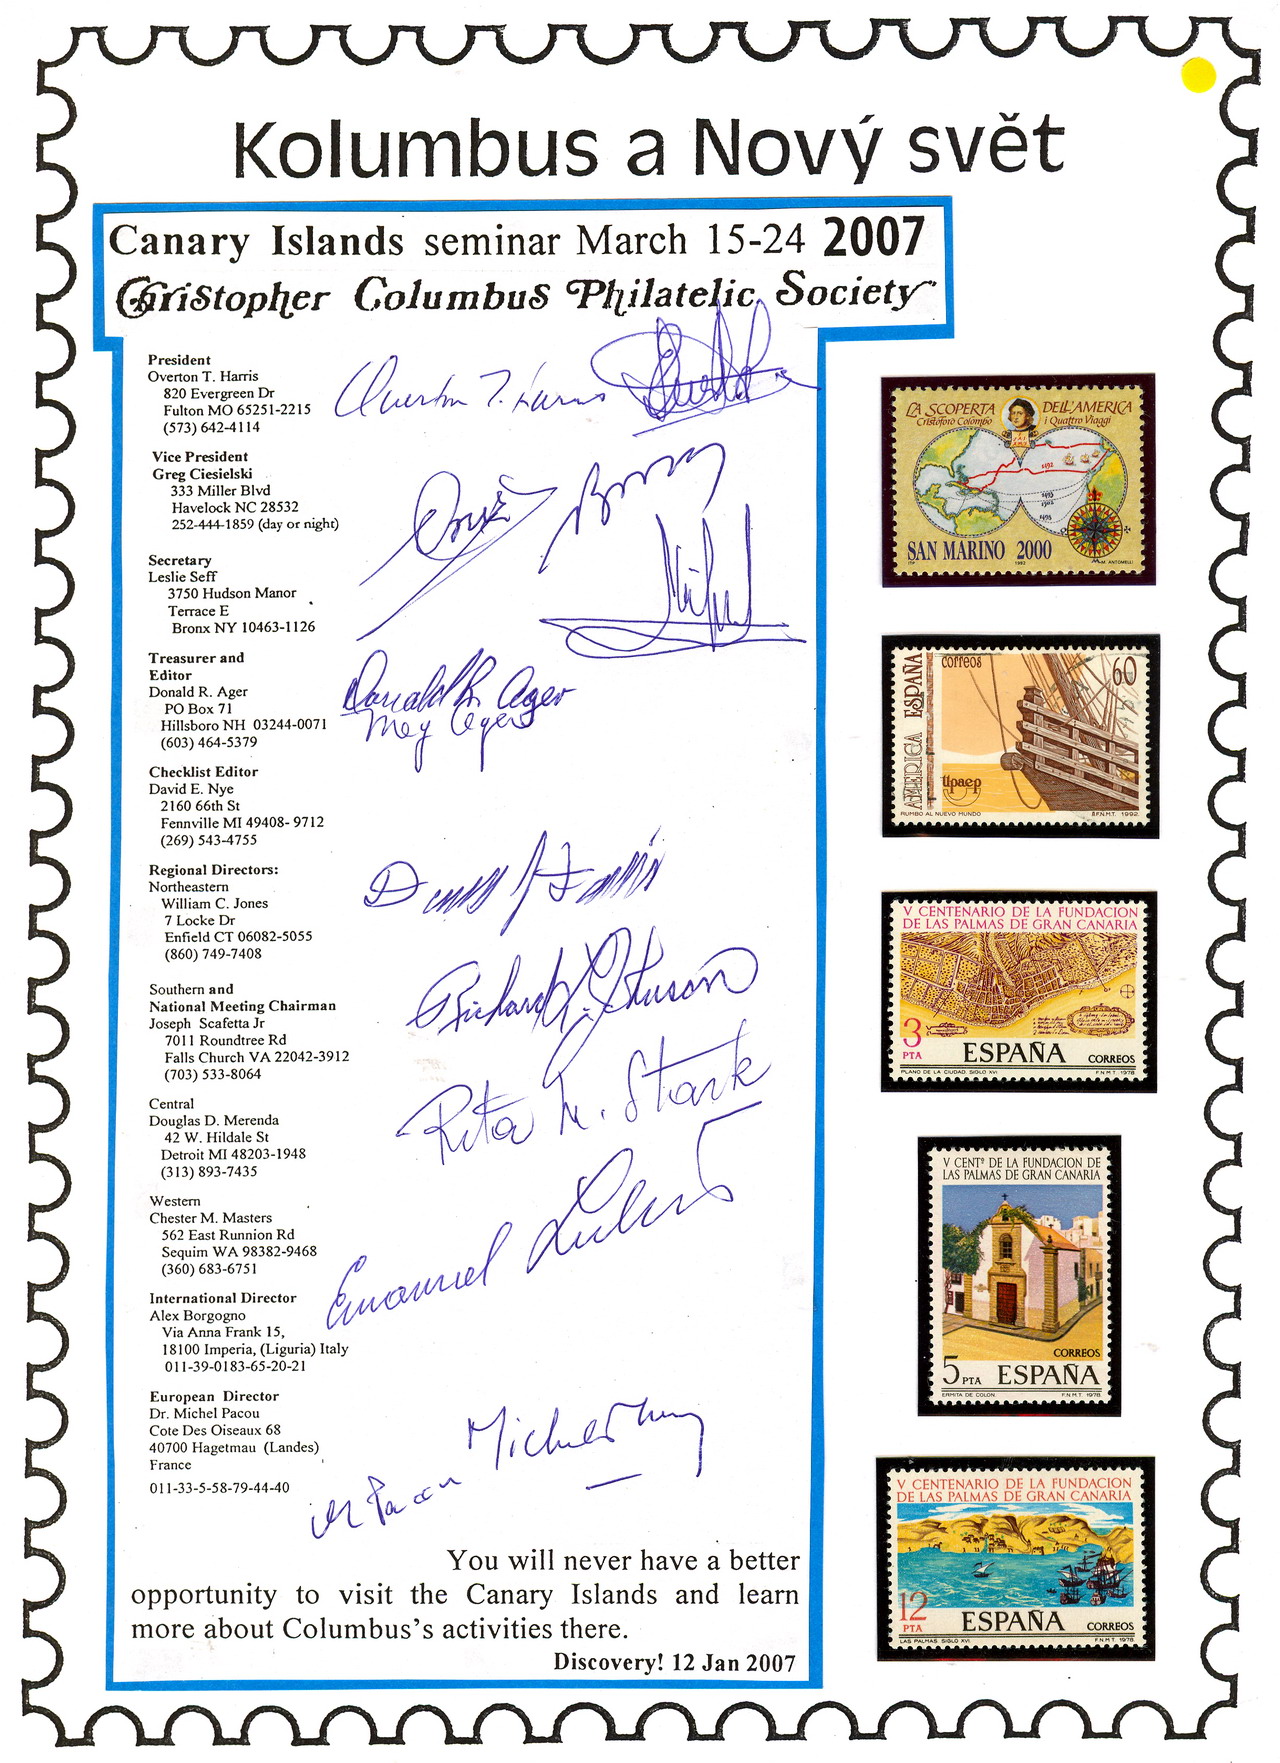 Kolumbus a Nový svět
Canary Islands seminar March 15-24 2007
Christopher Columbus Philatelic Society
President
Overton T. Harris
820 Evergreen Dr
Fulton MO 65251-2215
(573) 642-4114
Overton T. Harris
Vice President
Greg Ciesielski
333 Miller Blvd
Havelock NC 28532
252-444-1859 (day or night)
Secretary
Leslie Seff
3750 Hudson Manor
Terrace E
Bronx NY 10463-1126
Treasurer and
Editor
Donald R. Ager
PO Box 71
Hillsboro NH 03244-0071
(603) 464-5379
Donald R. Ager
Meg Ager
Checklist Editor
David E. Nye
2160 66th St
Fennville MI 49408- 9712
(269) 543-4755
Regional Directors:
Northeastern
William C. Jones
7 Locke Dr
Enfield CT 06082-5055
(860) 749-7408
Southern and
National Meeting Chairman
Joseph Scafetta Jr
7011 Roundtree Rd
Falls Church VA 22042-3912
(703) 533-8064
Richard
Rita M. Stark
Central
Douglas D. Merenda
42 W. Hildale St
Detroit MI 48203-1948
(313) 893-7435
Western
Chester M. Masters
562 East Runnion Rd
Sequim WA 98382-9468
(360) 683-6751
Emanuel
International Director
Alex Borgogno
Via Anna Frank 15,
18100 Imperia, (Liguria) Italy
011-39-0183-65-20-21
European Director
Dr. Michel Pacou
Cote Des Oiseaux 68
40700 Hagetmau (Landes)
France
011-33-5-58-79-44-40
You will never have a better
opportunity to visit the Canary Islands and learn
more about Columbus's activities there.
Discovery! 12 Jan 2007
LA SCOPERTA DELL'AMERICA
Cristoforo Colombo i Quattro Viaggi
1492
1493
1502
1498
SAN MARINO 2000
1992 M. ANTOMELLI
correos 60
AMERICA ESPAÑA
upaep
RUMBO AL NUEVO MUNDO F.N.M.T. 1992
V CENTENARIO DE LA FUNDACION
DE LAS PALMAS DE GRAN CANARIA
3
PTA ESPAÑA CORREOS
PLANO DE LA CIUDAD. SIGLO XVI F.N.M.T. 1978
V CENTº DE LA FUNDACION DE
LAS PALMAS DE GRAN CANARIA
CORREOS
5 PTA ESPAÑA
ERMITA DE COLON F.N.M.T. 1978
V CENTENARIO DE LA FUNDACION
DE LAS PALMAS DE GRAN CANARIA
12
PTA ESPAÑA CORREOS
LAS PALMAS. SIGLO XVI F.N.M.T. 1978